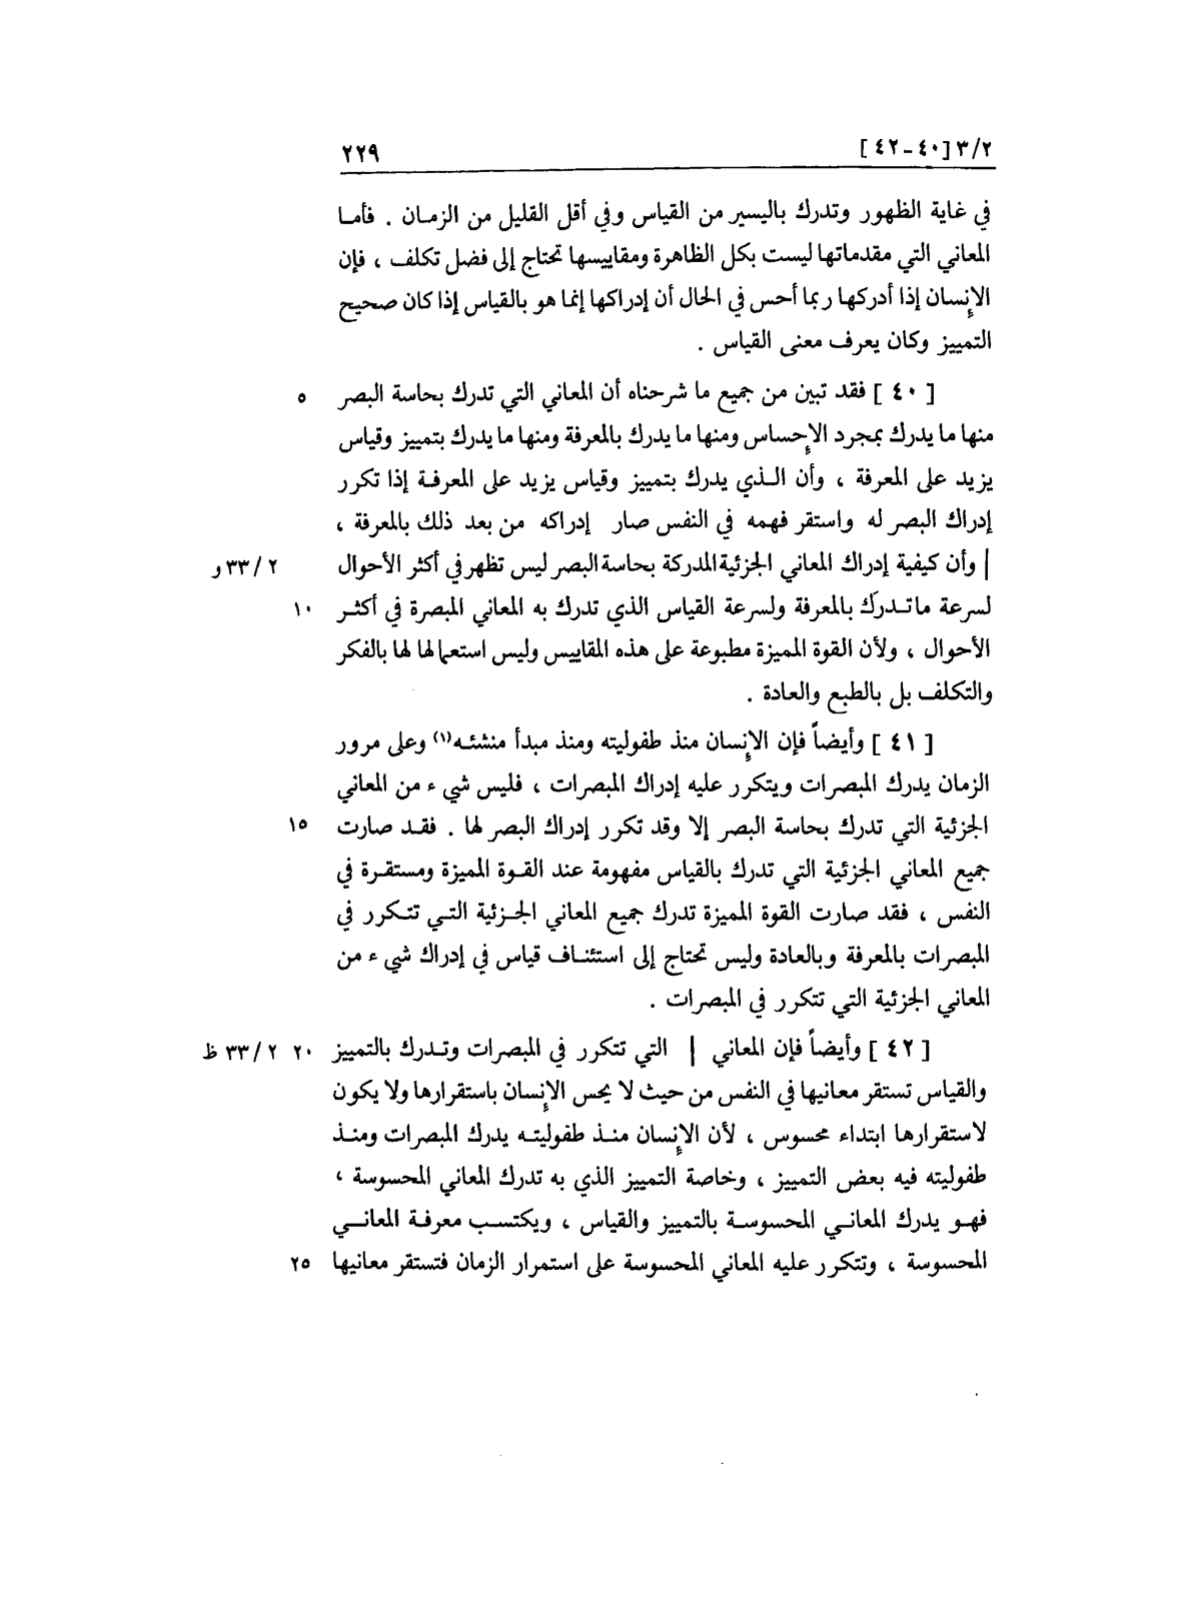 ٣/٢ [٤٠-٤٢] ٢٢٩
في غاية الظهور وتدرك باليسير من القياس وفي أقل القليل من الزمان . فأما
المعاني التي مقدماتها ليست بكل الظاهرة ومقاييسها تحتاج إلى فضل تكلف ، فإن
الإنسان إذا أدركها ربما أحس في الحال أن إدراكها إنما هو بالقياس إذا كان صحيح
التمييز وكان يعرف معنى القياس .
[ ٤٠ ] فقد تبين من جميع ما شرحناه أن المعاني التي تدرك بحاسة البصر ٥
منها ما يدرك بمجرد الإحساس ومنها ما يدرك بالمعرفة ومنها ما يدرك بتمييز وقياس
يزيد على المعرفة ، وأن الذي يدرك بتمييز وقياس يزيد على المعرفة إذا تكرر
إدراك البصر له واستقر فهمه في النفس صار إدراكه من بعد ذلك بالمعرفة ،
| وأن كيفية إدراك المعاني الجزئية المدركة بحاسة البصر ليس تظهر في أكثر الأحوال ٢ /٣٣ و
لسرعة ما تدرَك بالمعرفة ولسرعة القياس الذي تدرك به المعاني المبصرة في أكثر ١٠
الأحوال ، ولأن القوة المميزة مطبوعة على هذه المقاييس وليس استعمالها لها بالفكر
والتكلف بل بالطبع والعادة .
[ ٤١ ] وأيضاً فإن الإنسان منذ طفوليته ومنذ مبدأ منشئه(١) وعلى مرور
الزمان يدرك المبصرات ويتكرر عليه إدراك المبصرات ، فليس شيء من المعاني
الجزئية التي تدرك بحاسة البصر إلا وقد تكرر إدراك البصر لها . فقد صارت ١٥
جميع المعاني الجزئية التي تدرك بالقياس مفهومة عند القوة المميزة ومستقرة في
النفس ، فقد صارت القوة المميزة تدرك جميع المعاني الجزئية التي تتكرر في
المبصرات بالمعرفة وبالعادة وليس تحتاج إلى استئناف قياس في إدراك شيء من
المعاني الجزئية التي تتكرر في المبصرات .
[ ٤٢ ] وأيضاً فإن المعاني | التي تتكرر في المبصرات وتدرك بالتمييز ٢٠ ٢ /٣٣ ظ
والقياس تستقر معانيها في النفس من حيث لا يحس الإنسان باستقرارها ولا يكون
لاستقرارها ابتداء محسوس ، لأن الإنسان منذ طفوليته يدرك المبصرات ومنذ
طفوليته فيه بعض التمييز ، وخاصة التمييز الذي به تدرك المعاني المحسوسة ،
فهو يدرك المعاني المحسوسة بالتمييز والقياس ، ويكتسب معرفة المعاني
المحسوسة ، وتتكرر عليه المعاني المحسوسة على استمرار الزمان فتستقر معانيها ٢٥